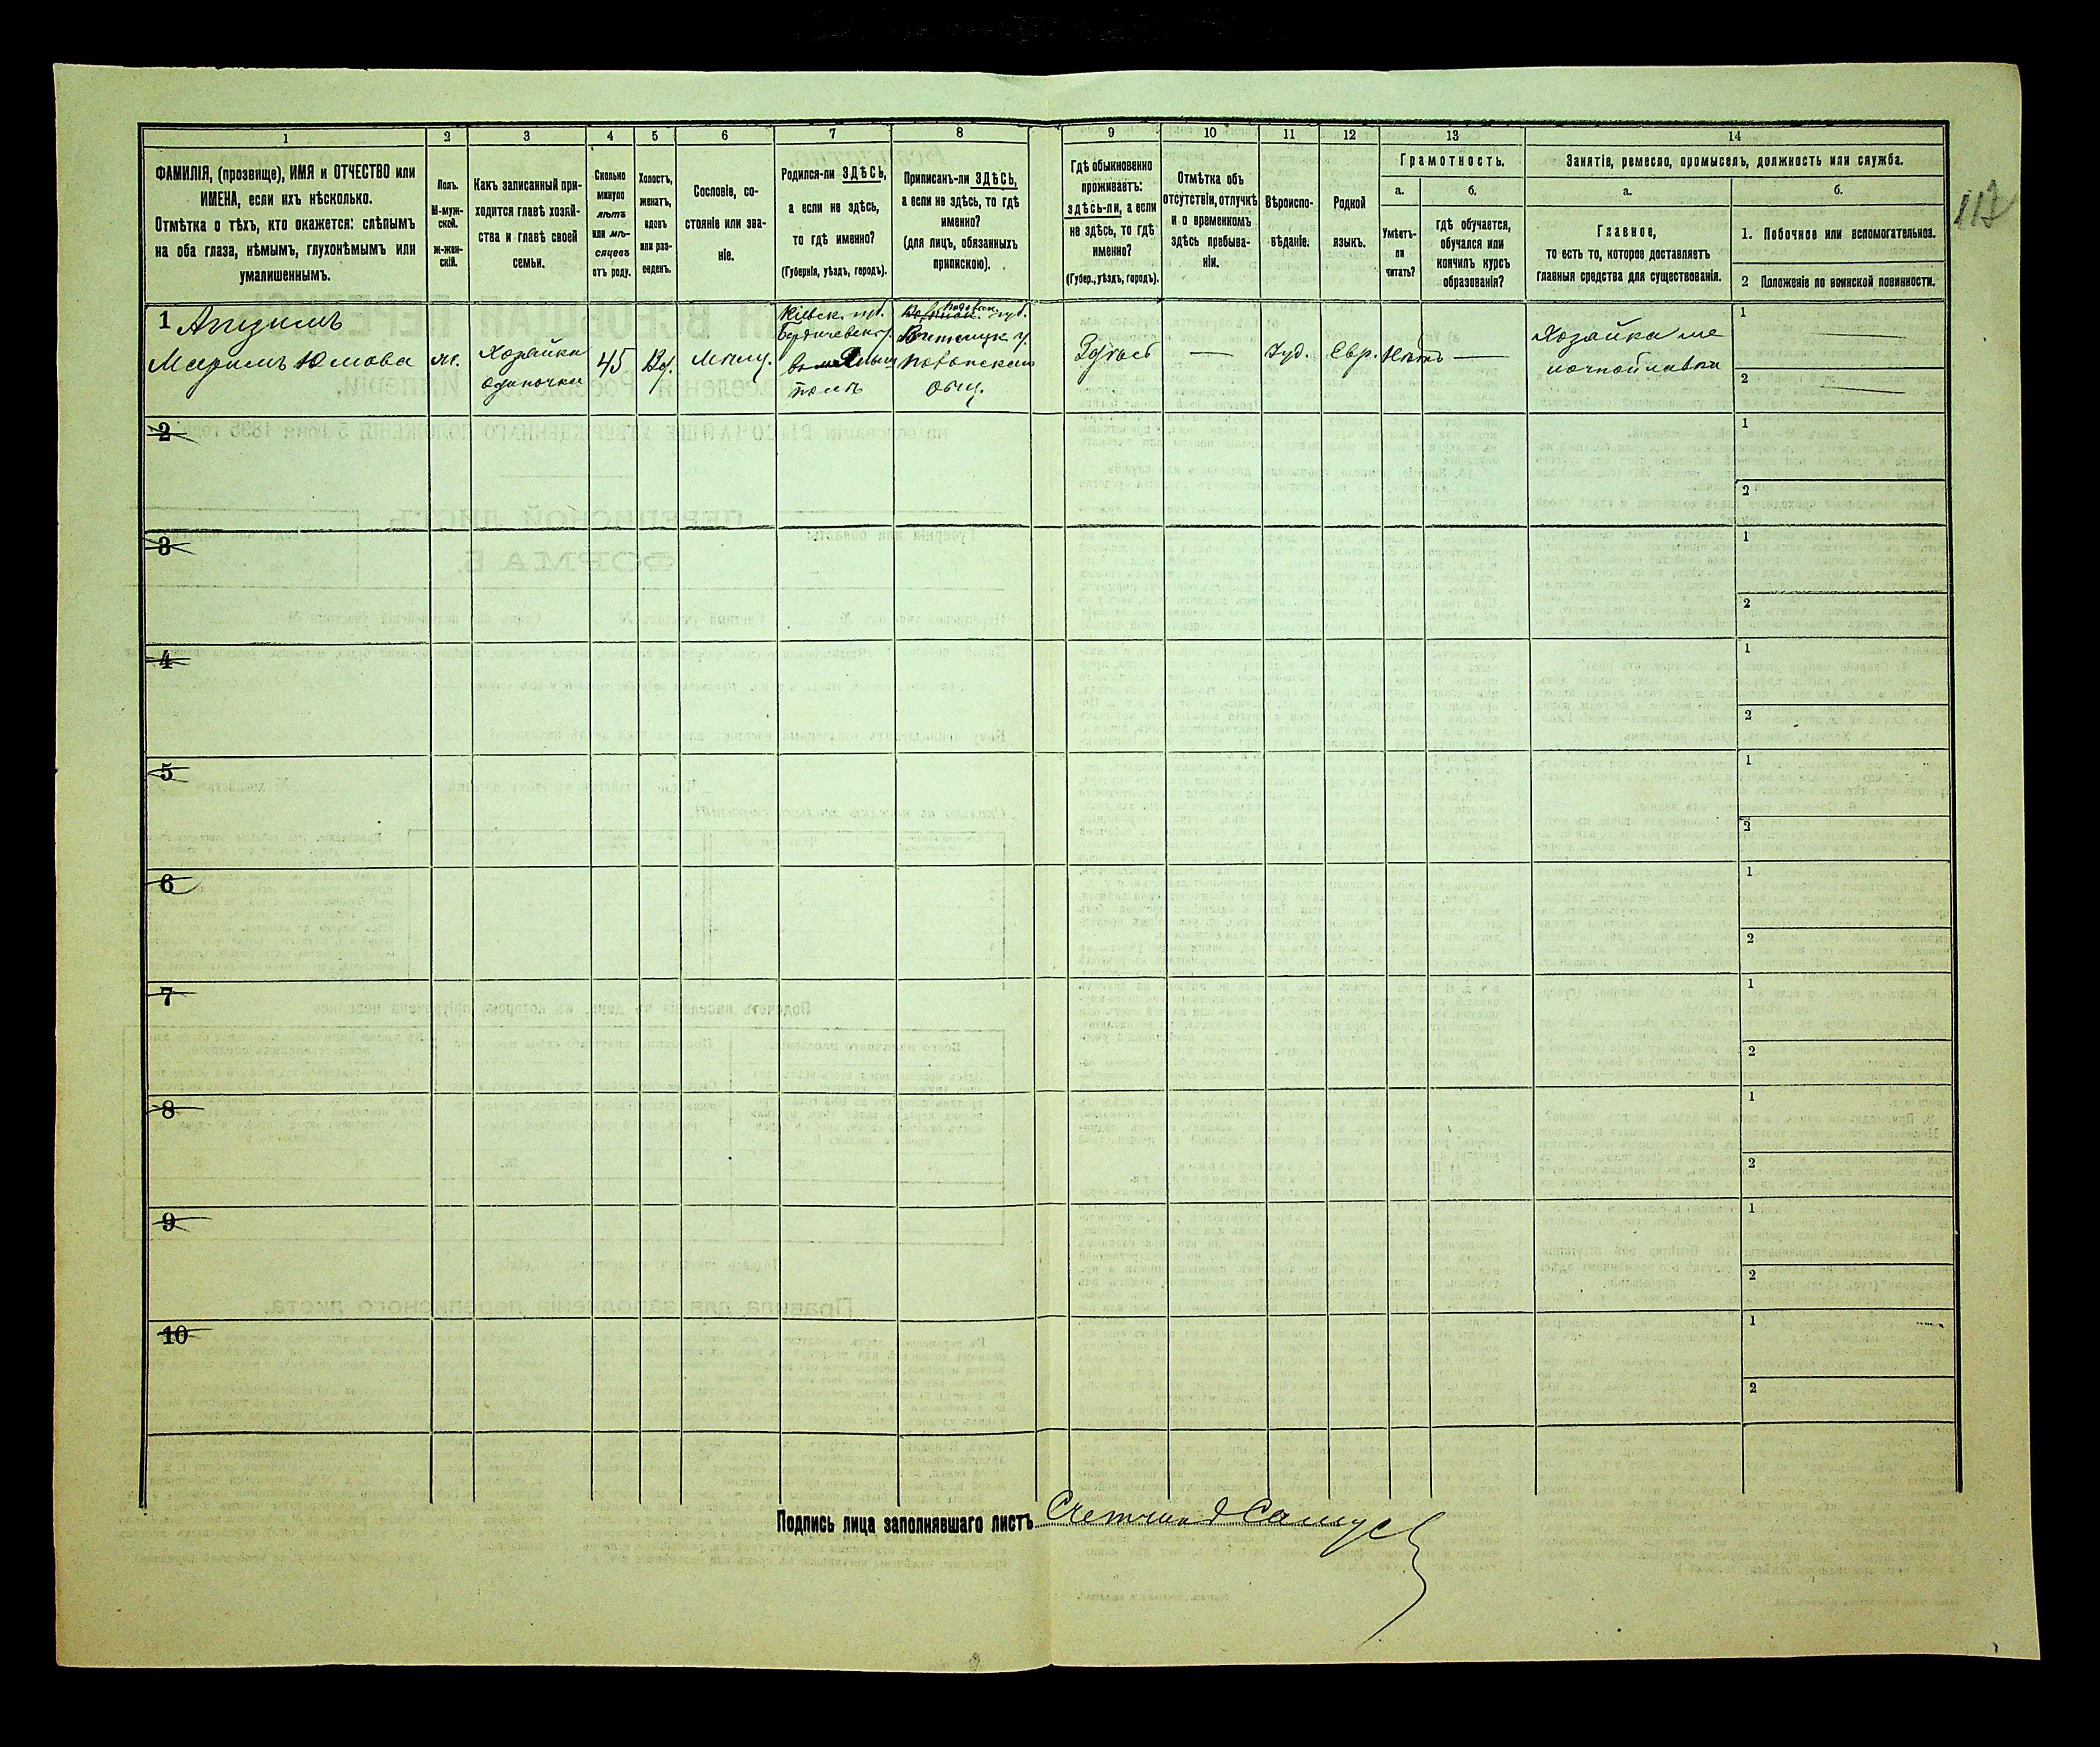 1
2
3
4
5
6
7
8
9
10
11
12
13
14
ФАМИЛІЯ, (прозвище), ИМЯ и ОТЧЕСТВО или
ИМЕНА, если ихъ нѣсколько.
Отмѣтка о тѣхъ, кто окажется: слѣпымъ
на оба глаза, нѣмымъ, глухонѣмымъ или
умалишеннымъ.
Полъ.
М-муж-
ской.
ж-жен-
скій.
Какъ записанный при-
ходится главѣ хозяй-
ства и главѣ своей
семьи.
Сколько
минуло
лѣтъ
или мѣ-
сяцевъ
отъ роду.
Холостъ,
женатъ,
вдовъ
или раз-
веденъ.
Сословіе, со-
стояніе или зва-
ніе.
Родился-ли ЗДѢСЬ,
а если не здѣсь,
то гдѣ именно?
(Губернія, уѣздъ, городъ).
Приписанъ-ли ЗДѢСЬ,
а если не здѣсь, то гдѣ
именно?
(для лицъ, обязанныхъ
припискою).
Гдѣ обыкновенно
проживаетъ:
здѣсь-ли, а если
не здѣсь, то гдѣ
именно?
(Губер., уѣздъ, городъ).
Отмѣтка объ
отсутствіи, отлучкѣ
и о временномъ
здѣсь пребыва-
ніи.
Вѣроиспо-
вѣданіе.
Родной
языкъ.
Грамотность.
а.
Умѣетъ-
ли
читать?
б.
гдѣ обучается,
обучался или
кончилъ курсъ
образованія?
Занятіе, ремесло, промыселъ, должность или служба.
а.
Главное,
то есть то, которое доставляетъ
главныя средства для существованія.
б.
1. Побочное или вспомогательное.
2 Положеніе по воинской повинности.
1
Маримъ
ж.
Хозяйка
одиночка
45
Вд.
Мѣщ.
Кіевск. губ.
Бердичевск у.
губ.
Общ.
Здѣсь
—
Іуд.
Евр.
Нѣтъ
—
Хозяйка ме
лочной лавки
1
2
2
1
2
3
1
2
4
1
2
5
1
2
6
1
2
7
1
2
8
1
2
9
1
2
10
1
2
Подпись лица заполнявшаго листъ Счетчик